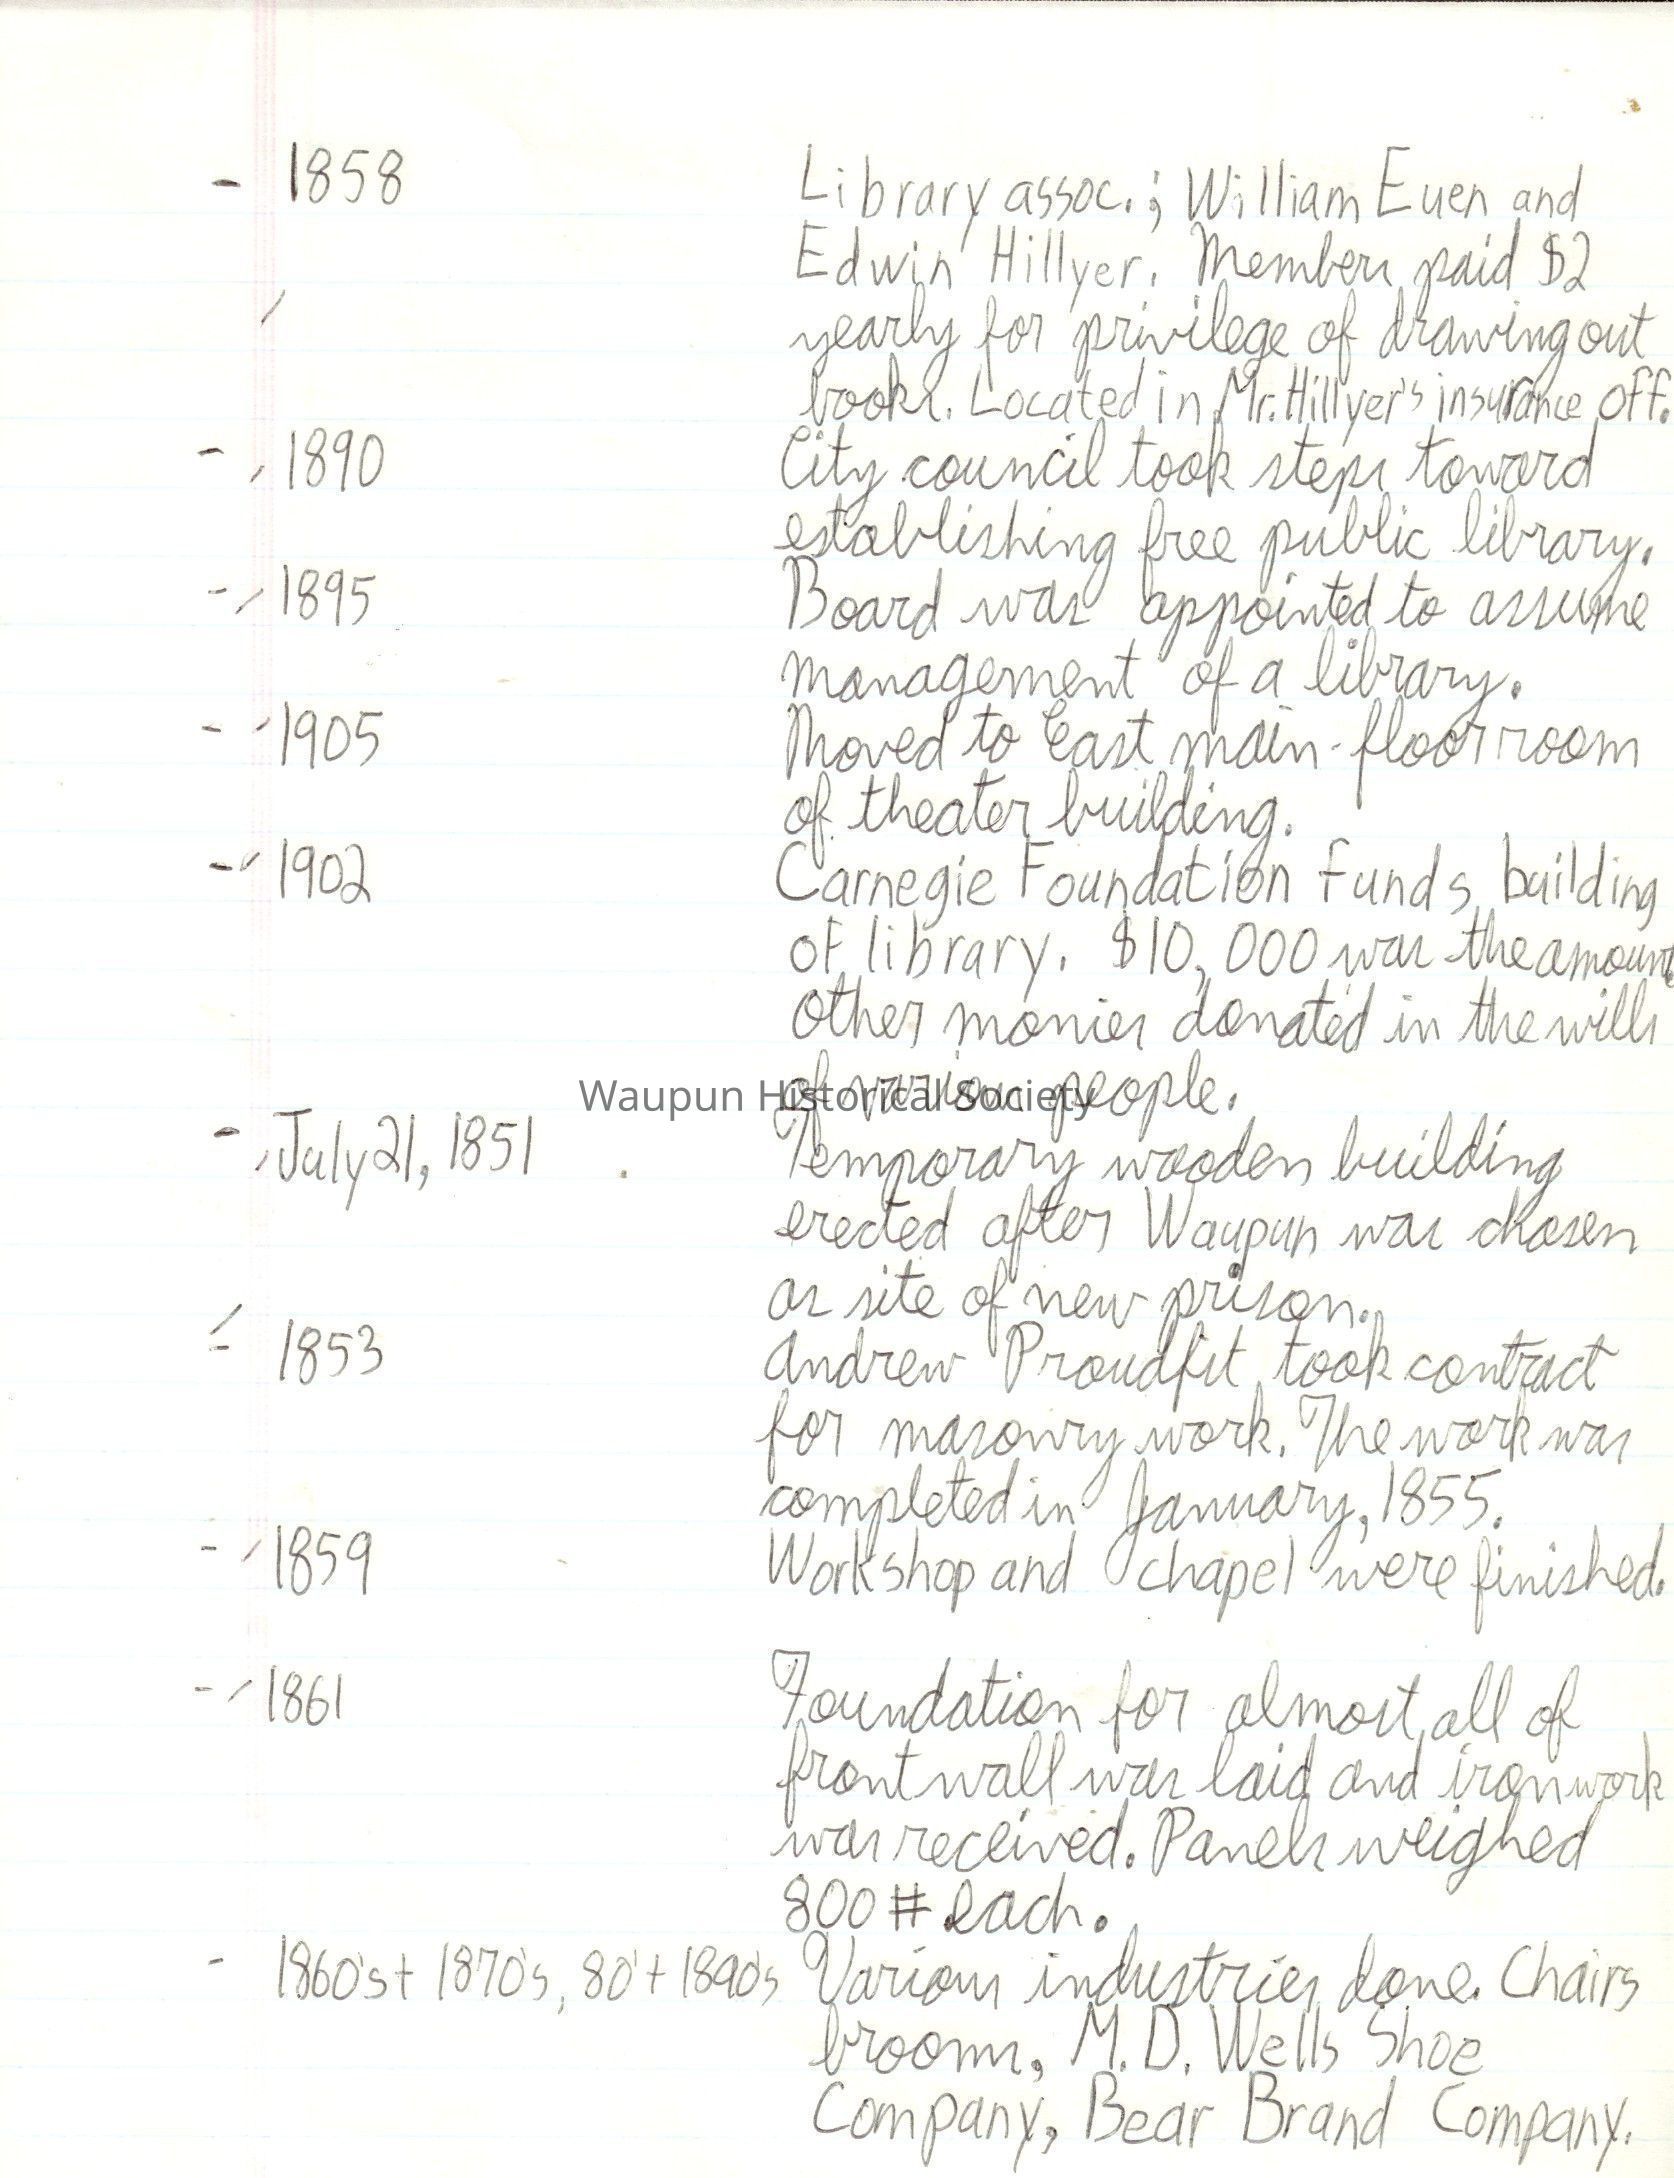 - 1858 Library assoc.; William Euen and
Edwin Hillyer. Members paid $2
yearly for privilege of drawing out
books. Located in Mr. Hillyer's insurance off.
- 1890 City council took steps toward
establishing free public library.
- 1895 Board was appointed to assume
management of a library.
- 1905 Moved to East main-floor room
of theater building.
- 1902 Carnegie Foundation funds building
of library. $10,000 was the amount.
Other monies donated in the wills
of various people.
Waupun Historical Society
- July 21, 1851 Temporary wooden building
erected after Waupun was chosen
as site of new prison.
- 1853 Andrew Proudfit took contract
for masonry work. The work was
completed in January, 1855.
- 1859 Workshop and chapel were finished.
- 1861 Foundation for almost all of
front wall was laid and ironwork
was received. Panels weighed
800 # each.
- 1860's + 1870's, 80' + 1890's Various industries done. Chairs
brooms, M.D. Wells Shoe
Company, Bear Brand Company.